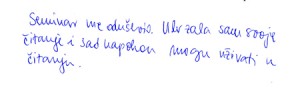 Seminar me oduševio. Ubrzala sam svoje
čitanje i sad napokon mogu uživati u
čitanju.